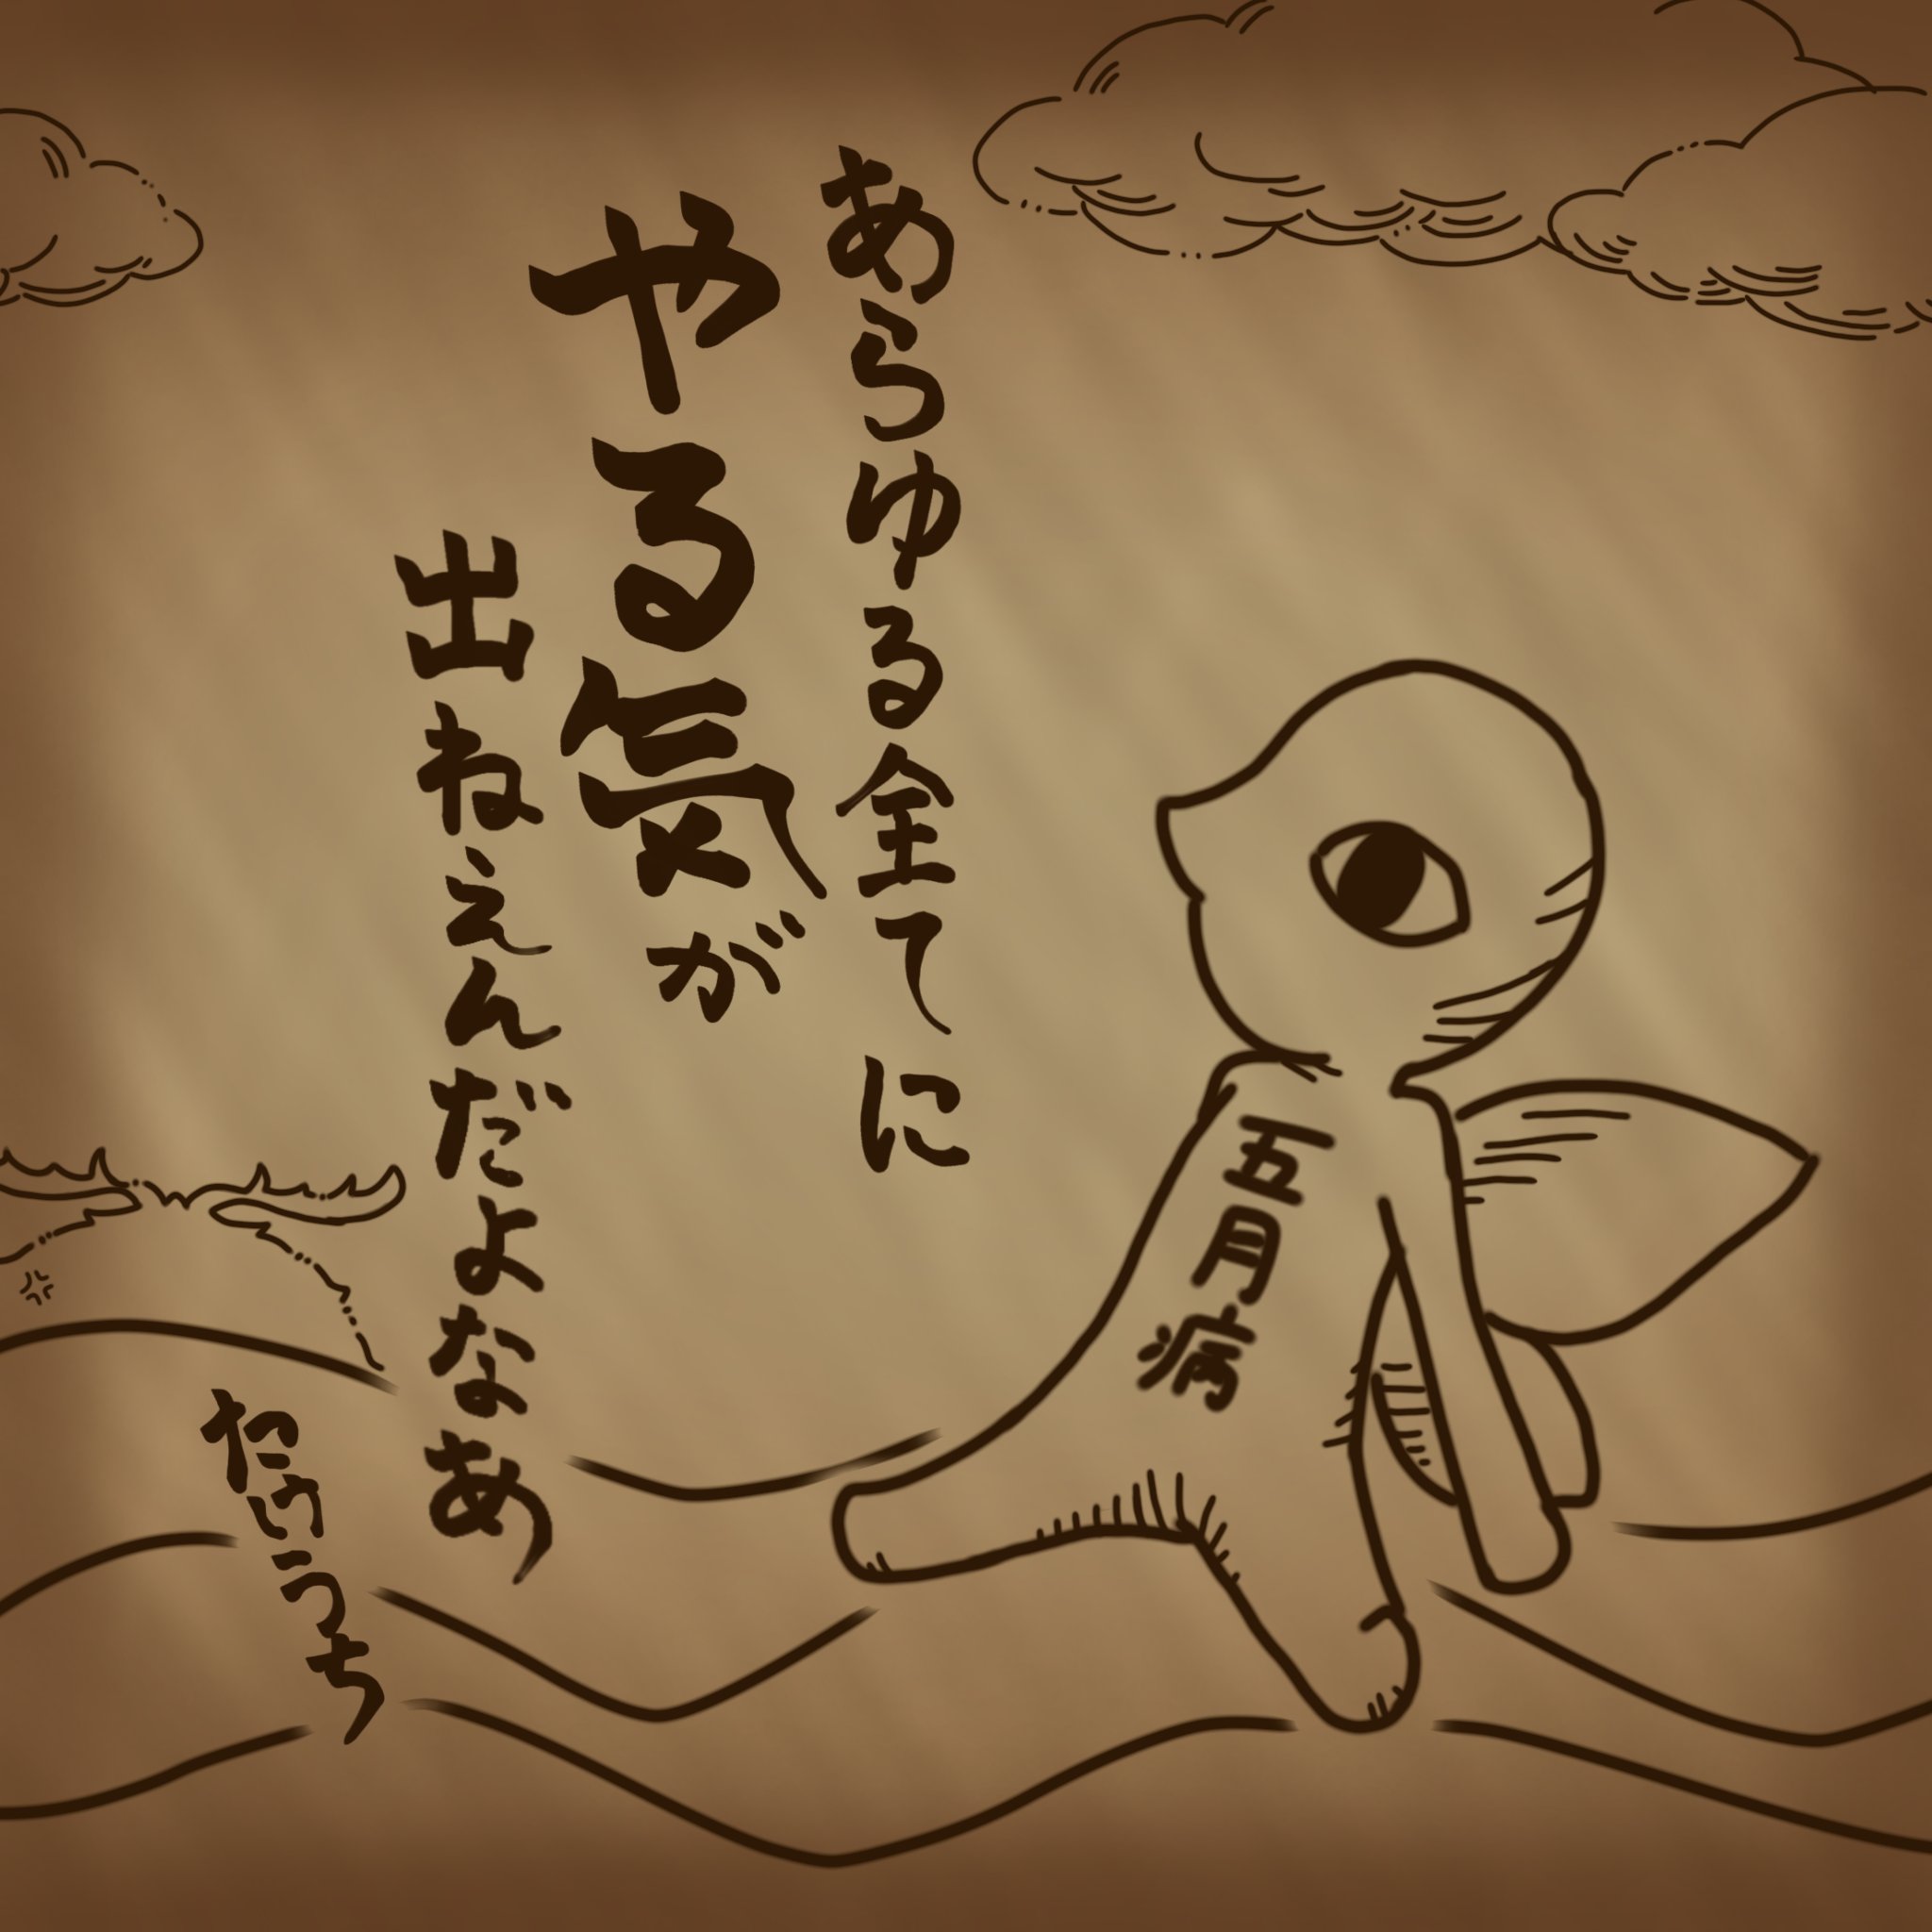 あらゆる全てに
やる気が
出ねえんだよなあ
たけうっち
五月病